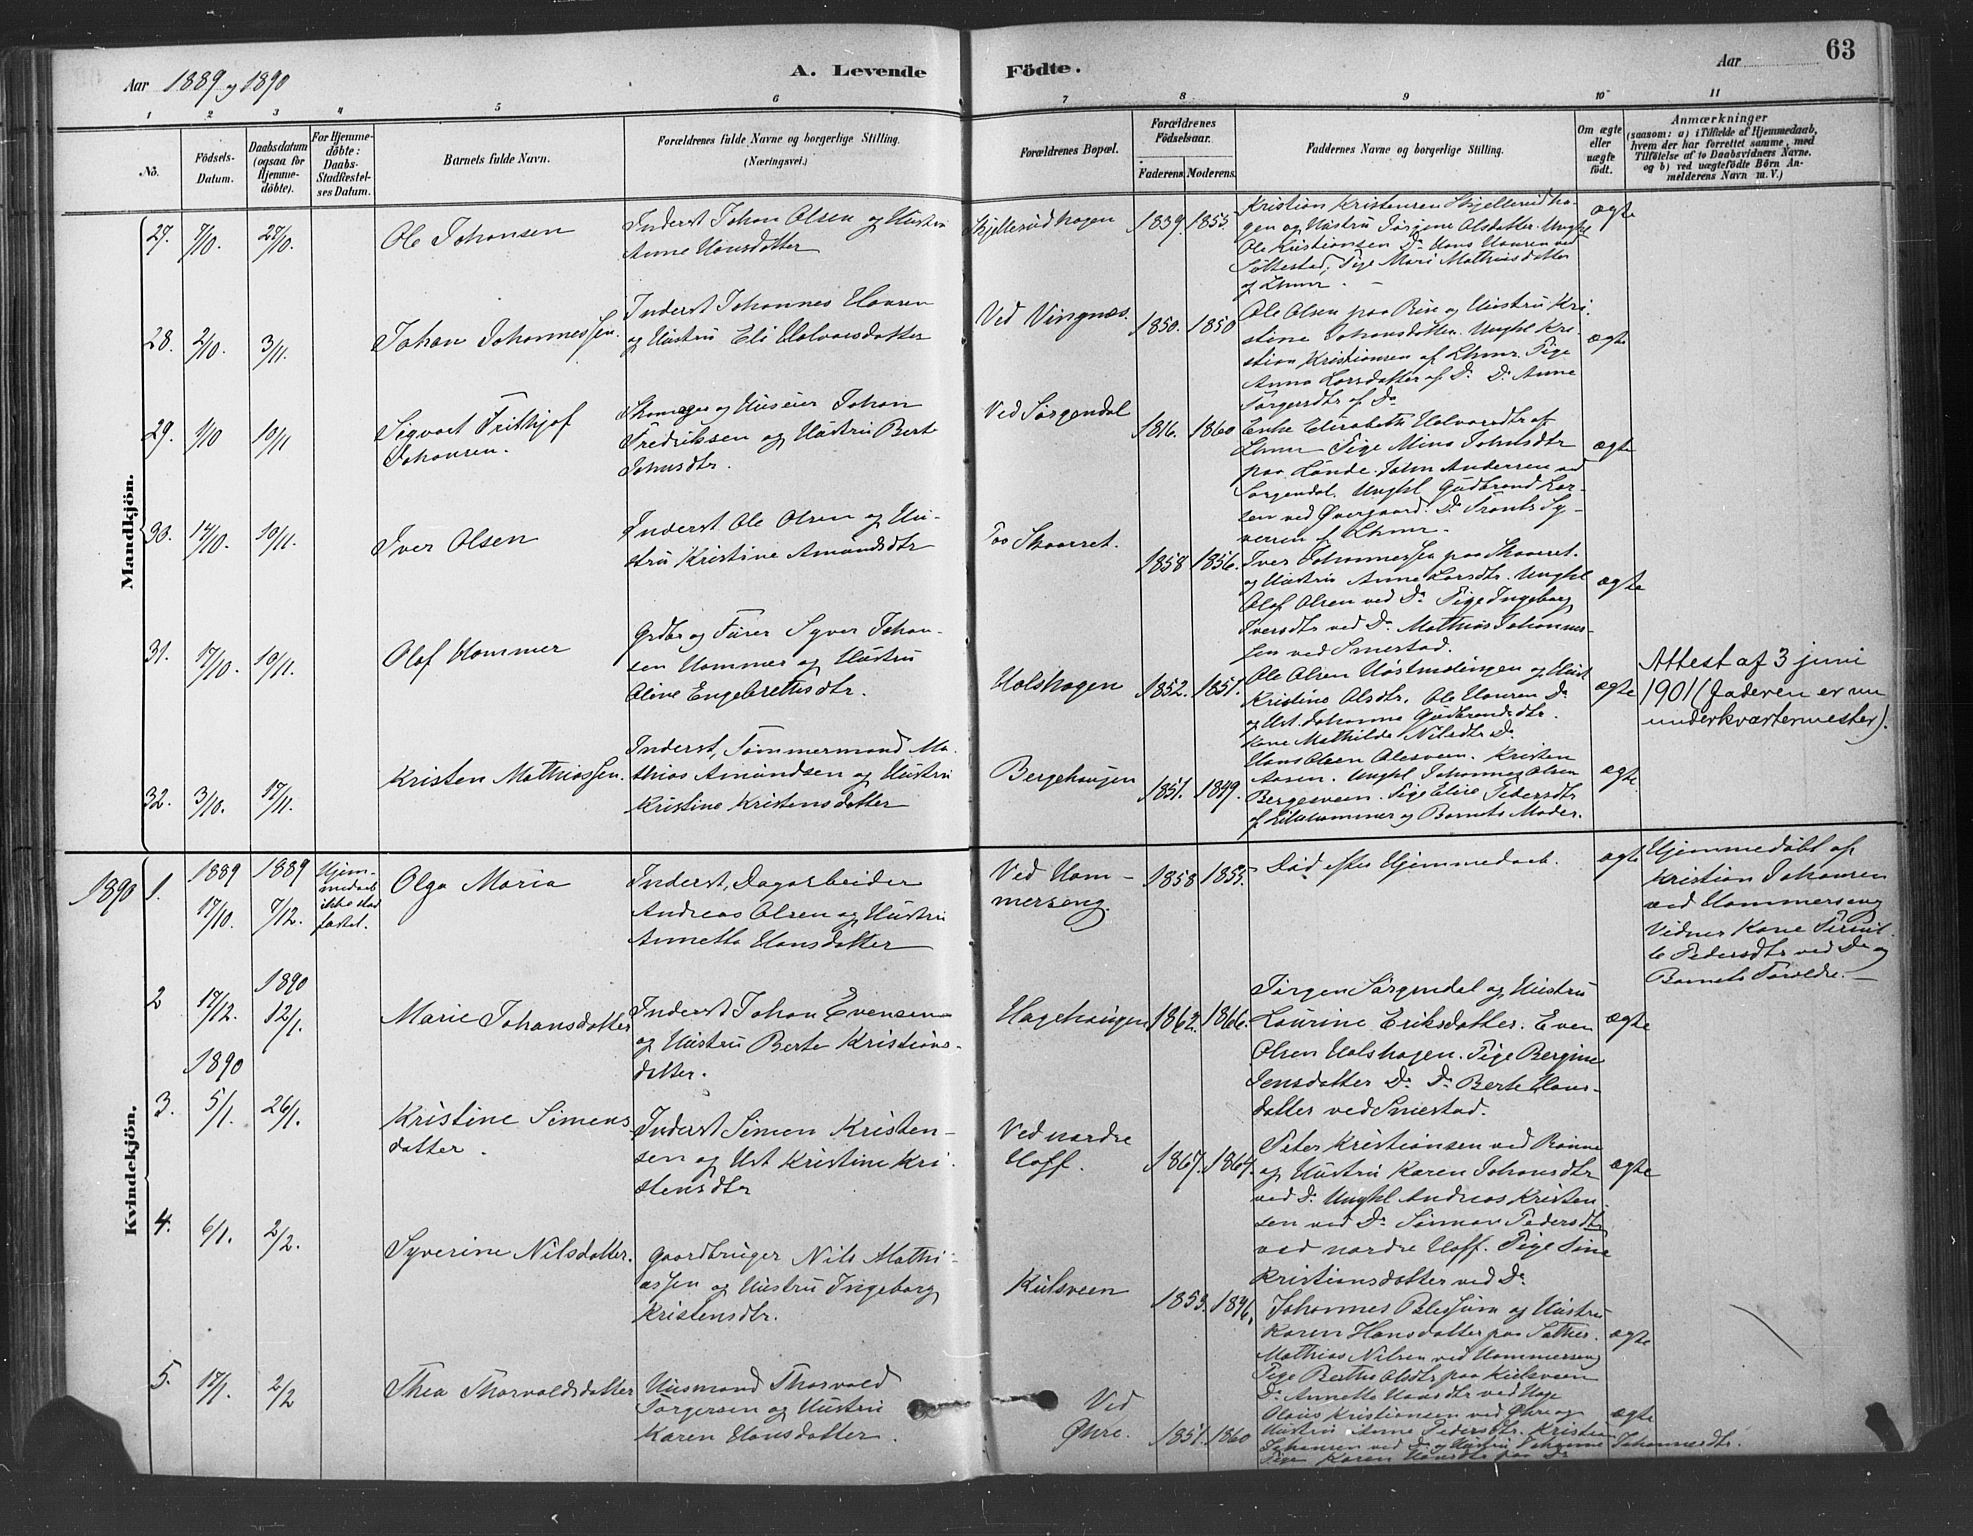 Aar 1889 og 1890
A. Levende Födte.
Aar
63
1 2 3 4 5 6 7 8 9 10 11
No.
Födsels-Datum.
Daabsdatum (ogsaa for Hjemme-döbte).
For Hjemme-döbte: Daabs-Stadfæstel-ses Datum.
Barnets fulde Navn.
Forældrenes fulde Navne og borgerlige Stilling.
(Næringsvei.)
Forældrenes Bopæl.
Forældrenes Födselsaar.
Faderens. Moderens.
Faddernes Navne og borgerlige Stilling.
Om ægte eller uægte födt.
Anmærkninger
(saasom: a) i Tilfælde af Hjemmedaab,
hvem der har forrettet samme, med
Tilföielse af to Daabsvidners Navne.
og b) ved uægtefödte Börn An-
melderens Navn m. V.)
Mandkjön.
27. 7/10. 27/10. Ole Johansen
Inderst Johan Olsen og Hustru
Anne Hansdatter
Skjellerudhagen 1839. 1853.
Kristian Kristensen Skjellerudha-
gen og Hustru Jørgine Olsdatter. Unghl
Ole Kristiansen Do Hans Hansen ved
Søttestad, Pige Mari Mathiasdatter
af Lhmr. -
ægte
28. 2/10. 3/11. Johan Johannessen.
Inderst Johannes Hansen
og Hustru Eli Halvorsdatter
Ved Vingnæs. 1850. 1850
Ole Olsen paa Rin og Hustru Kri-
stine Johansdatter. Unghl Kri-
stian Kristiansen af Lhmr. Pige
Anna Larsdatter af Do Do Anne
Jørgensdtr af Do
ægte
29. 1/10 10/11 Sigvart Frithjof
Johansen.
Skomager og Huseier Johan
Fredriksen og Hustru Berte
Johnsdtr.
Ved Jørgendal 1816. 1860
Enke Elisabeth Halvorsdtr af
Lhmr Pige Mina Johnsdtr
paa Lunde. John Andersen ved
Jørgendal. Unghl Gudbrand Lar-
sen ved Øvergaard. Do Frants Sy-
versen af Lhmr.
ægte
30. 14/10. 10/11. Iver Olsen
Inderst Ole Olsen og Hu-
stru Kristine Amundsdtr
Paa Skaarset. 1858 1856.
Iver Johannessen paa Skaaret.
og Hustru Anne Larsdtr. Unghl
Olaf Olsen ved Do Pige Ingeborg
Iversdtr ved Do Mathias Johannes-
sen ved Smestad.
ægte
31. 17/10. 10/11. Olaf Hammer
Grdbr og Furer Syver Johan-
sen Hammer og Hustru
Oline Engebrettsdtr.
Holshagen 1852. 1851.
Ole Olsen Høstmælingen og Hust
Kristine Olsdtr. Ole Hansen Do
og Hust. Johanna Gudbrandsdtr.
Kone Mathilde Nilsdtr Do
ægte
Attest af 3 juni
1901 (faderen er nu
underkvartermester).
32. 3/10. 17/11. Kristen Mathiassen.
Inderst, Tømmermand Ma-
thias Amundsen og Hustru
Kristine Kristensdatter
Bergehaugen 1851. 1849.
Hans Olsen Olesveen. Kristen
Aasen. Unghl Johannes Olsen
Bergesveen. Pige Eline Pedersdtr
af Lillehammer og Barnets Moder.
ægte
Kvindekjön.
1890 1. 1889 17/10. 1889 7/12.
Hjem-
medaab
ikke stad
fæstet.
Olga Maria
Inderst, Dagarbeider
Andreas Olsen og Hustru
Annette Hansdatter
Ved Ham-
merseng. 1858 1853.
Død efter Hjemmedaab.
ægte
Hjemmedøbt af
Kristian Johansen
ved Hammerseng
Vidner Kone Pernil-
le Pedersdtr ved Do og
Barnets Forældre.
2 17/12. 1890 12/1. Marie Johansdatter
Inderst Johan Evensen
og Hustru Berte Kristians-
datter.
Hagehaugen 1862. 1866.
Jørgen Jørgendal og Hustru
Laurine Eriksdatter. Even
Olsen Holshagen. Pige Bergine
Jensdatter Do Do Berte Hans-
datter ved Smestad.
ægte
1890
3. 5/1. 26/1. Kristine Simens
datter.
Inderst Simen Kristen-
sen og Hust Kristine Kri-
stensdtr
Ved nordre
Hoff. 1867. 1864.
Peter Kristiansen ved Rønne
og Hustru Karen Johansdtr
ved Do Unghl Andreas Kristen
sen ved Do Pedersdtr
ved nordre Hoff. Pige Sine
Kristiansdatter ved Do
ægte
4. 6/1. 2/2. Syverine Nilsdatter.
Gaardbruger Nils Mathi-
assen og Hustru Ingeborg
Kristensdtr.
Kulsveen 1853. 1846.
Johannes Blessum og Hustru
Karen Hansdatter paa Sæther.
Mathias Nilsen ved Hammerseng
Pige Berthe Olsdtr paa Kulsveen
Do Annette Hansdtr ved Hage
ægte
5. 17/1. 2/2 Thea Thorvaldsdatter
Husmand Thorvald
Jørgensen og Hustru
Karen Hansdatter.
Ved
Øhre. 1851. 1860
Olaus Kristiansen ved Øhre og
Hustru Anne Pedersdtr. Kristian
Johansen ved Do og Hustru Johanne Johannesdtr.
Pige Karen Hansdtr paa Do
ægte